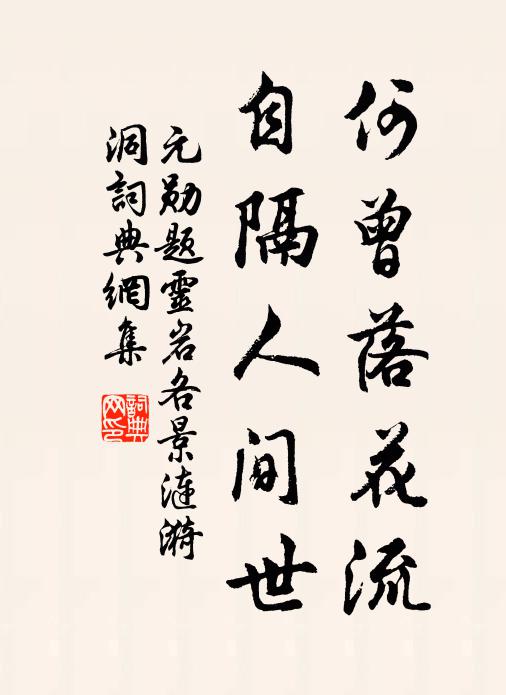 何曾落花流
自隔人间世
元勋题靈岩各景涟漪
洞詞典網集
詞典
网印